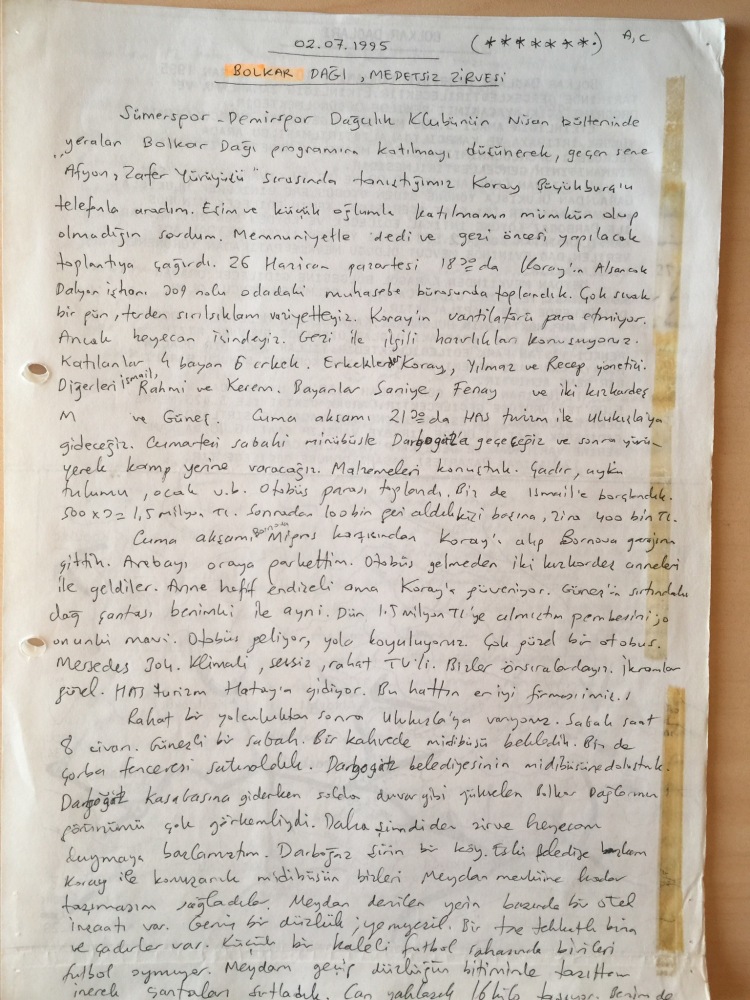 02.07.1995 (*******.) A,C
BOLKAR DAĞI, MEDETSİZ ZİRVESİ
Sümerspor-Demirspor Dağcılık Klubünün Nisan bülteninde
yeralan Bolkar Dağı programına katılmayı düşünerek, geçen sene
"Afyon, Zafer Yürüyüşü" sırasında tanıştığımız Koray Büyükburg'u
telefonla aradım. Eşim ve küçük oğlumla katılmamın mümkün olup
olmadığın sordum. Memnuniyetle dedi ve gezi öncesi yapılacak
toplantıya çağırdı. 26 Haziran pazartesi 18 30 da Koray'ın Alsancak
Dalyan işhanı 209 nolu odadaki muhasebe bürosunda toplandık. Çok sıcak
bir gün, terden sırılsıklam vaziyetteyiz. Koray'ın vantilatörü para etmiyor.
Ancak heyecan içindeyiz. Gezi ile ilgili hazırlıkları konuşuyoruz.
Katılanlar 4 bayan 6 erkek. Erkekler Koray, Yılmaz ve Recep yönetici.
Diğerleri İsmail, Rahmi ve Kerem. Bayanlar Saniye, Fenay ve iki kızkardeş
M ve Güneş. Cuma akşamı 21 30 da HAS turizm ile Ulukışla'ya
gideceğiz. Cumartesi sabahı minübüsle Darboğaz'a geçeceğiz ve sonra yürü-
yerek kamp yerine varacağız. Malzemeleri konuştuk. Çadır, uyku
tulumu, ocak v.b. Otobüs parası toplandı. Biz de İsmail'e borçlandık.
500 x 3 = 1,5 milyon TL. Sonradan 100 bin geri aldık kişi başına, zira 400 bin TL.
Cuma akşamı Bornova Migros karşısından Koray'ı alıp Bornova garajına
gittik. Arabayı oraya parkettim. Otobüs gelmeden iki kızkardeş anneleri
ile geldiler. Anne hafif endişeli ama Koray'a güveniyor. Güneş'in sırtındaki
dağ çantası benimki ile ayni. Dün 1.5 milyon TL'ye almıştım pembesini
onunki mavi. Otobüs geliyor, yola koyuluyoruz. Çok güzel bir otobüs.
Mersedes 304. Klimalı, sessiz, rahat TV'li. Bizler önsıralardayız. İkramlar
güzel. HAS turizm Hatay'a gidiyor. Bu hattın en iyi firması imiş.
Rahat bir yolculuktan sonra Ulukışla'ya varıyoruz. Sabah saat
8 civarı. Güneşli bir sabah. Bir kahvede midibüsü bekledik. Biz de
çorba tenceresi satınaldık. Darboğaz belediyesinin midibüsüne doluştuk.
Darboğaz kasabasına giderken solda duvar gibi yükselen Bolkar Dağlarının
görünümü çok görkemliydi. Daha şimdiden zirve heyecanı
duymaya başlamıştım. Darboğaz şirin bir köy. Eski Belediye başkanı
Koray ile konuşarak midibüsün bizleri Meydan mevkiine kadar
taşımasını sağladılar. Meydan denilen yerin başında bir otel
inşaatı var. Geniş bir düzlük, yemyeşil. Bir tane tek katlı bina
ve çadırlar var. Küçük bir kaleli futbol sahasında birileri
futbol oynuyor. Meydanı geçip düzlüğün bitiminde taşıttan
inerek çantaları sırtladık. Can yaklaşık 16 kilo taşıyor. Benim de